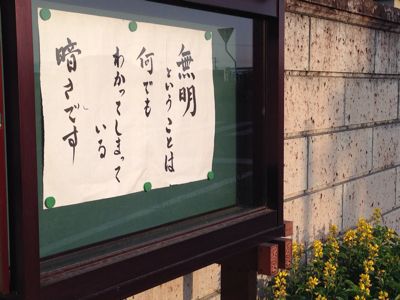 無明
ということは
何でも
わかってしまって
いる
暗さです